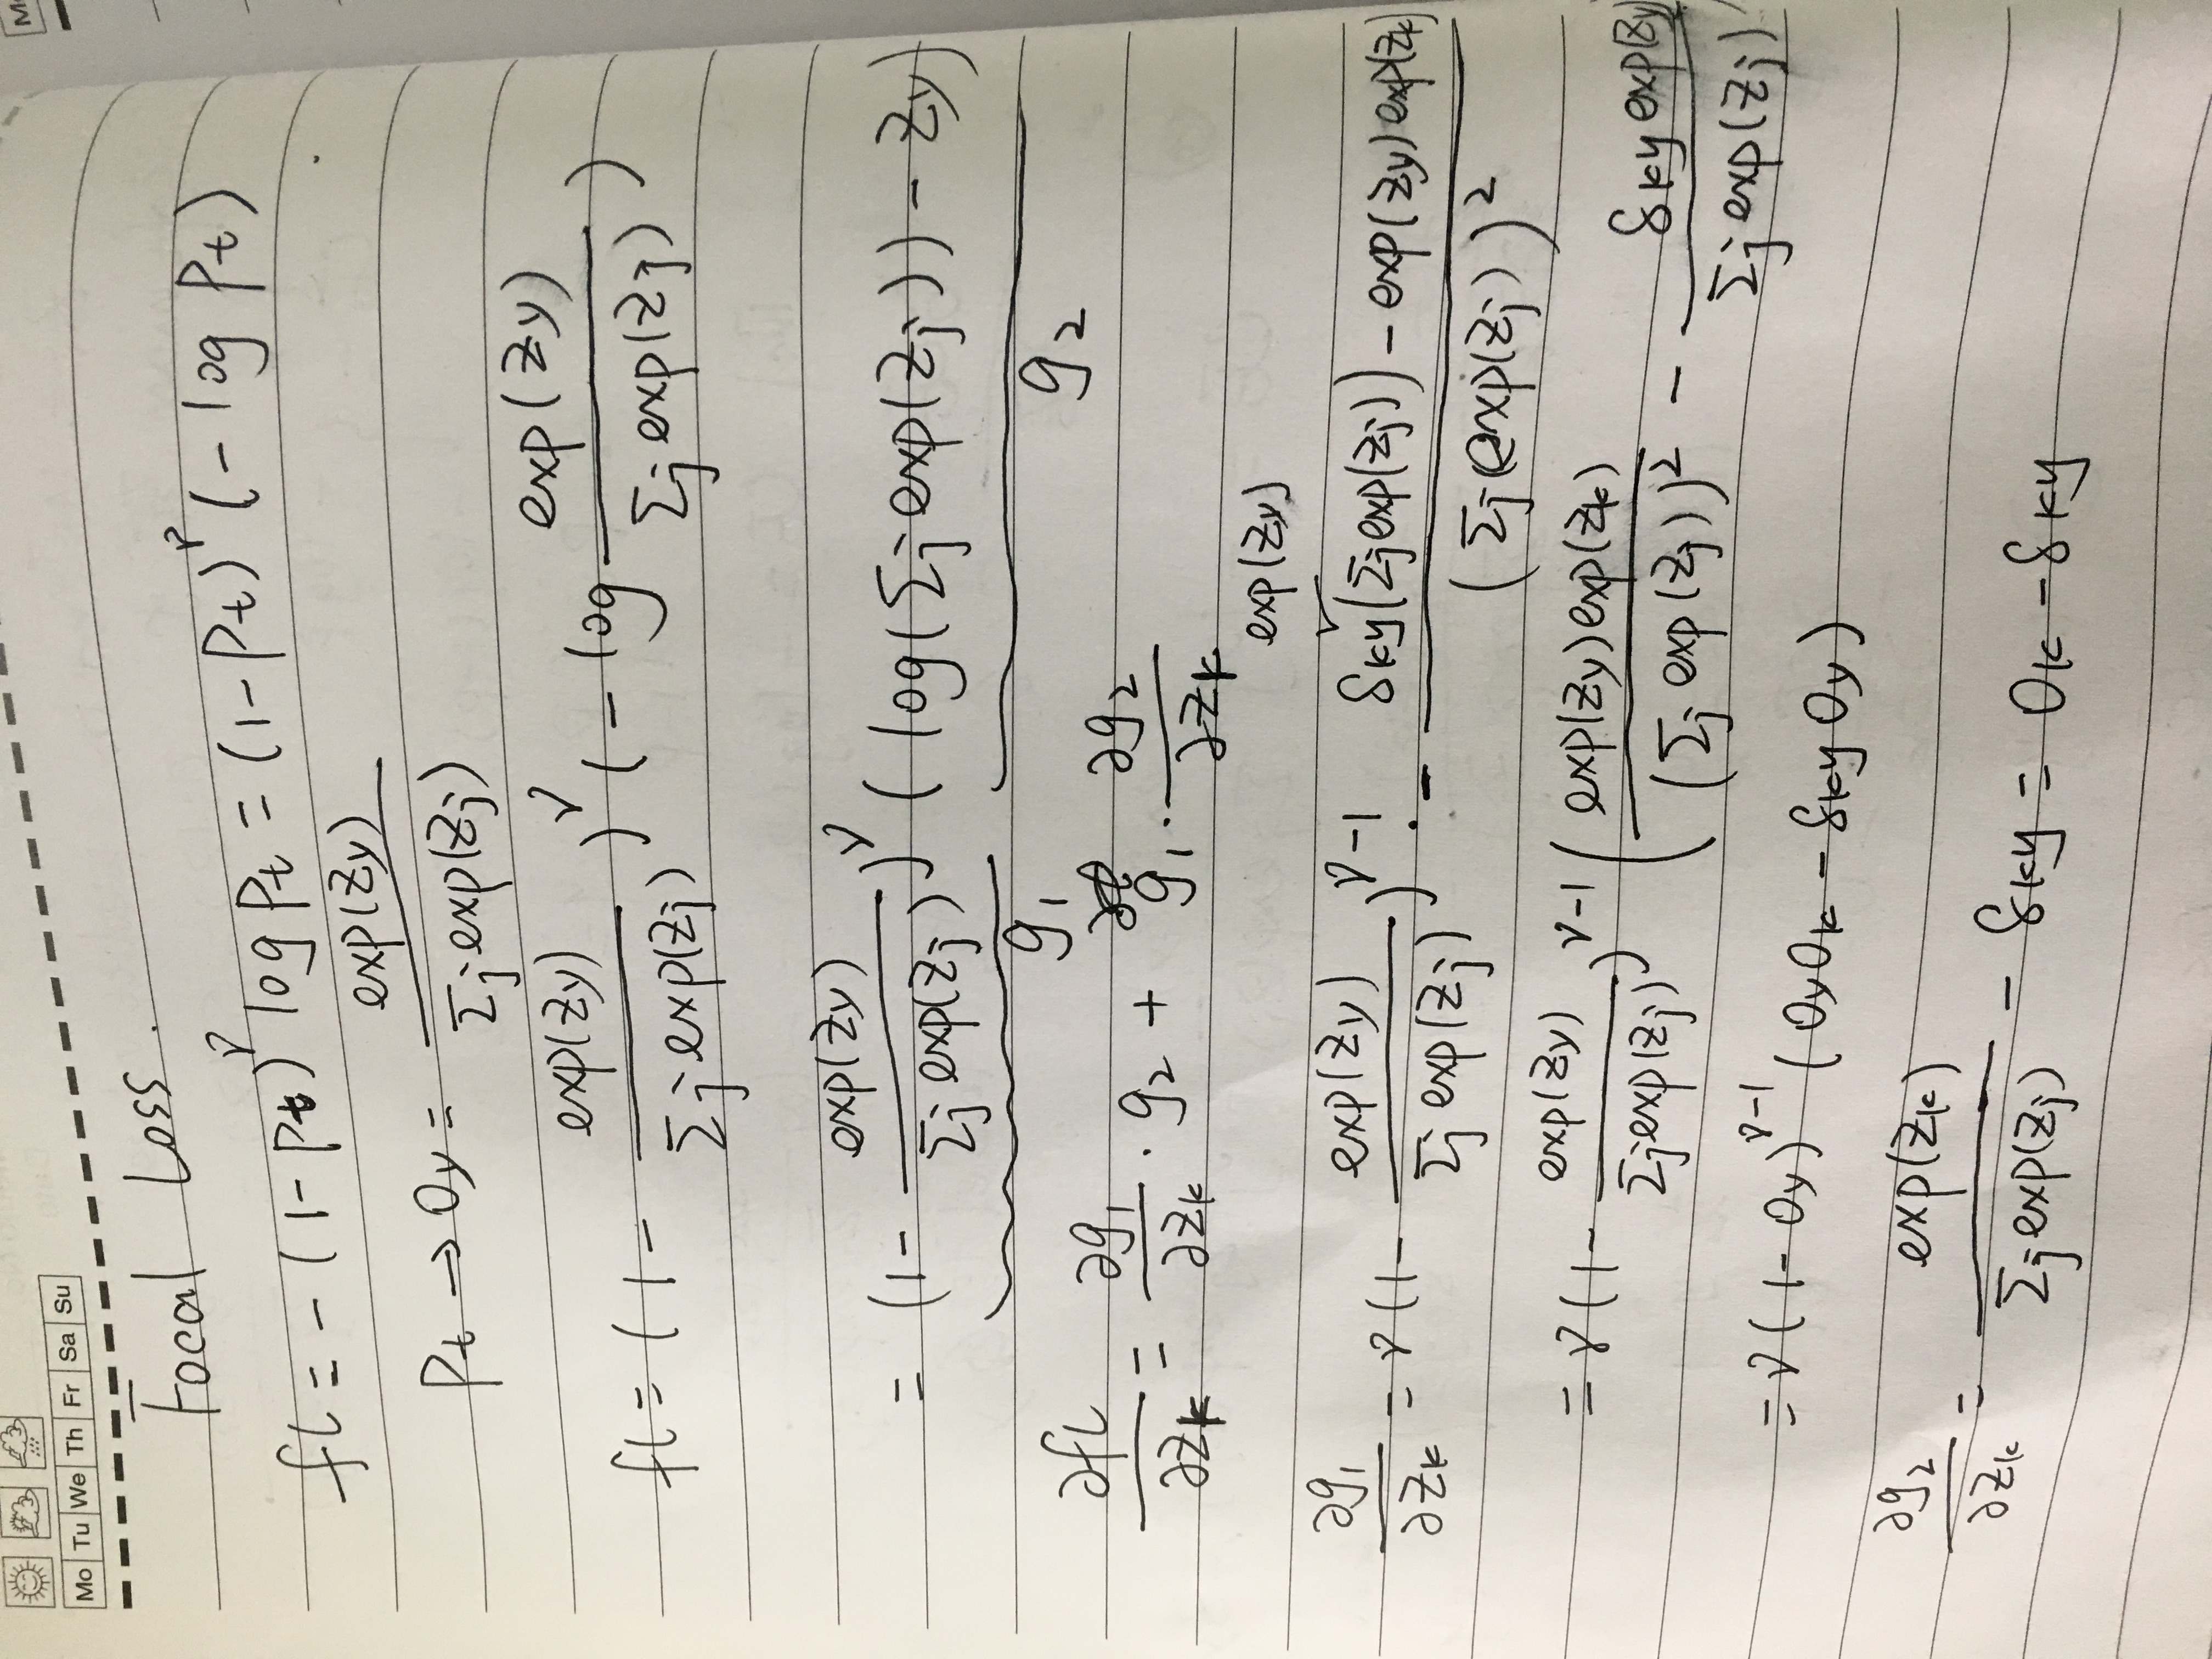 Mo Tu We Th Fr Sa Su
Focal Loss.
fl = -(1-Pt)^γ log Pt = (1-Pt)^γ (-log Pt)
Pt → Oy = exp(Zy) / Σj exp(Zj)
fl = (1 - exp(Zy) / Σj exp(Zj))^γ (-log exp(Zy) / Σj exp(Zj))
= (1 - exp(Zy) / Σj exp(Zj))^γ (log(Σj exp(Zj)) - Zy)
g1 g2
∂fl/∂Zk = ∂g1/∂Zk · g2 + g1 · ∂g2/∂Zk
exp(Zy)
∂g1/∂Zk = γ(1 - exp(Zy) / Σj exp(Zj))^γ-1 · - δky(Σj exp(Zj)) - exp(Zy) exp(Zk) / (Σj(exp(Zj))^2
= γ(1 - exp(Zy) / Σj exp(Zj))^γ-1 (exp(Zy) exp(Zk) / (Σj exp(Zj))^2 - δky exp(Zy) / Σj exp(Zj))
= γ(1-Oy)^γ-1 (OyOk - δky Oy)
∂g2/∂Zk = exp(Zk) / Σj exp(Zj) - δky = Ok - δky